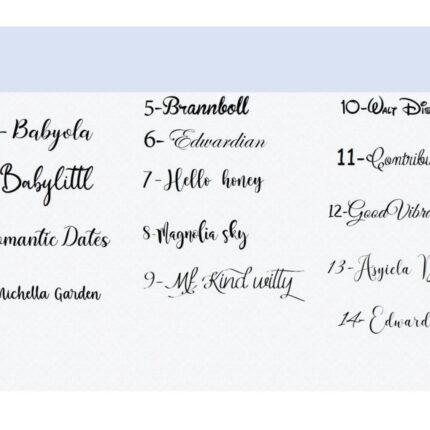 - Babyola
Babylittl
omantic Dates
Michella Garden
5-Brannboll
6- Edwardian
7-Hello honey
8-Magnolia sky
9-Mf Kind witty
10-Walt Dis
11-Contribu
12-GoodVibra
13-Asyiela
14-Edward